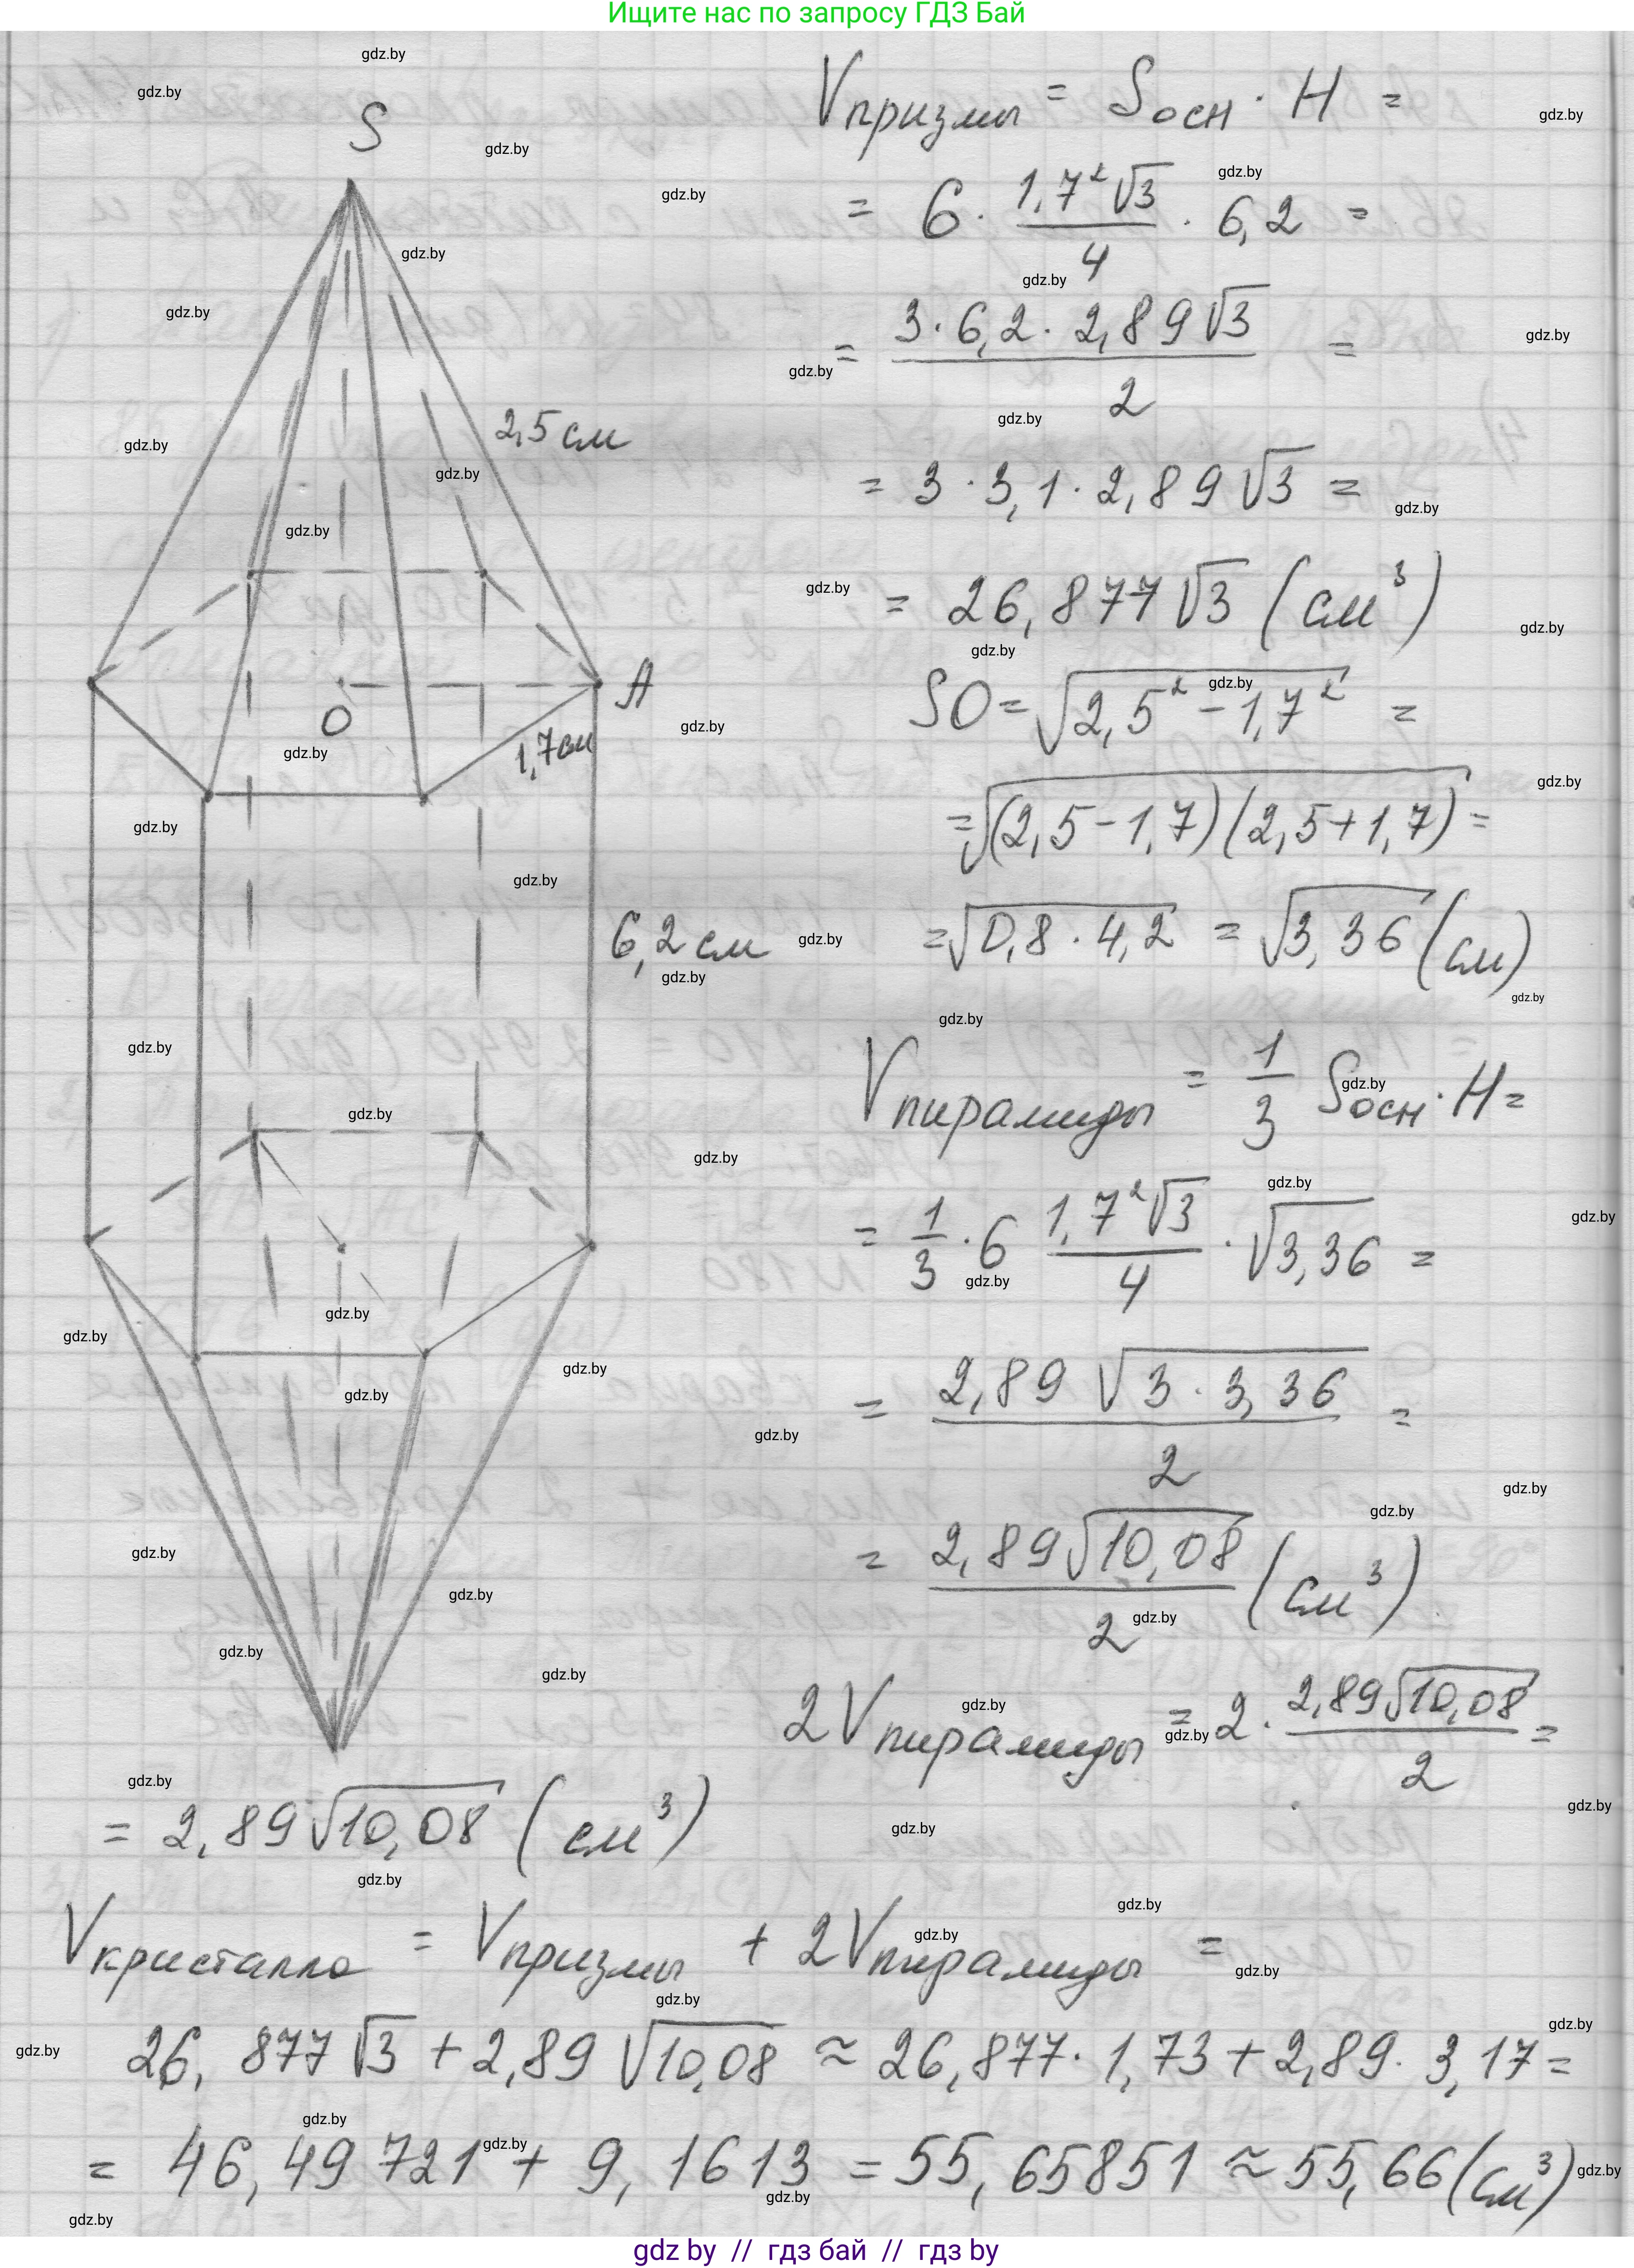 Ищите нас по запросу ГДЗ Бай
S
2,5 см
O
A
1,7см
6,2 см
Vпризмы = Sосн · H =
= 6 · 1,7²√3/4 · 6,2 =
= 3·6,2·2,89√3/2 =
= 3·3,1·2,89√3 =
= 26,877√3 (см³)
SO = √(2,5² − 1,7²) =
= √((2,5−1,7)(2,5+1,7)) =
= √(0,8·4,2) = √3,36 (см)
Vпирамиды = 1/3 Sосн · H =
= 1/3 · 6 1,7²√3/4 · √3,36 =
= 2,89 √(3·3,36)/2 =
= 2,89√10,08/2 (см³)
2Vпирамиды = 2 · 2,89√10,08/2 =
= 2,89√10,08 (см³)
Vкристалла = Vпризмы + 2Vпирамиды =
26,877√3 + 2,89√10,08 ≈ 26,877·1,73 + 2,89·3,17 =
= 46,49721 + 9,1613 = 55,65851 ≈ 55,66 (см³)
gdz by // гдз бай // гдз by